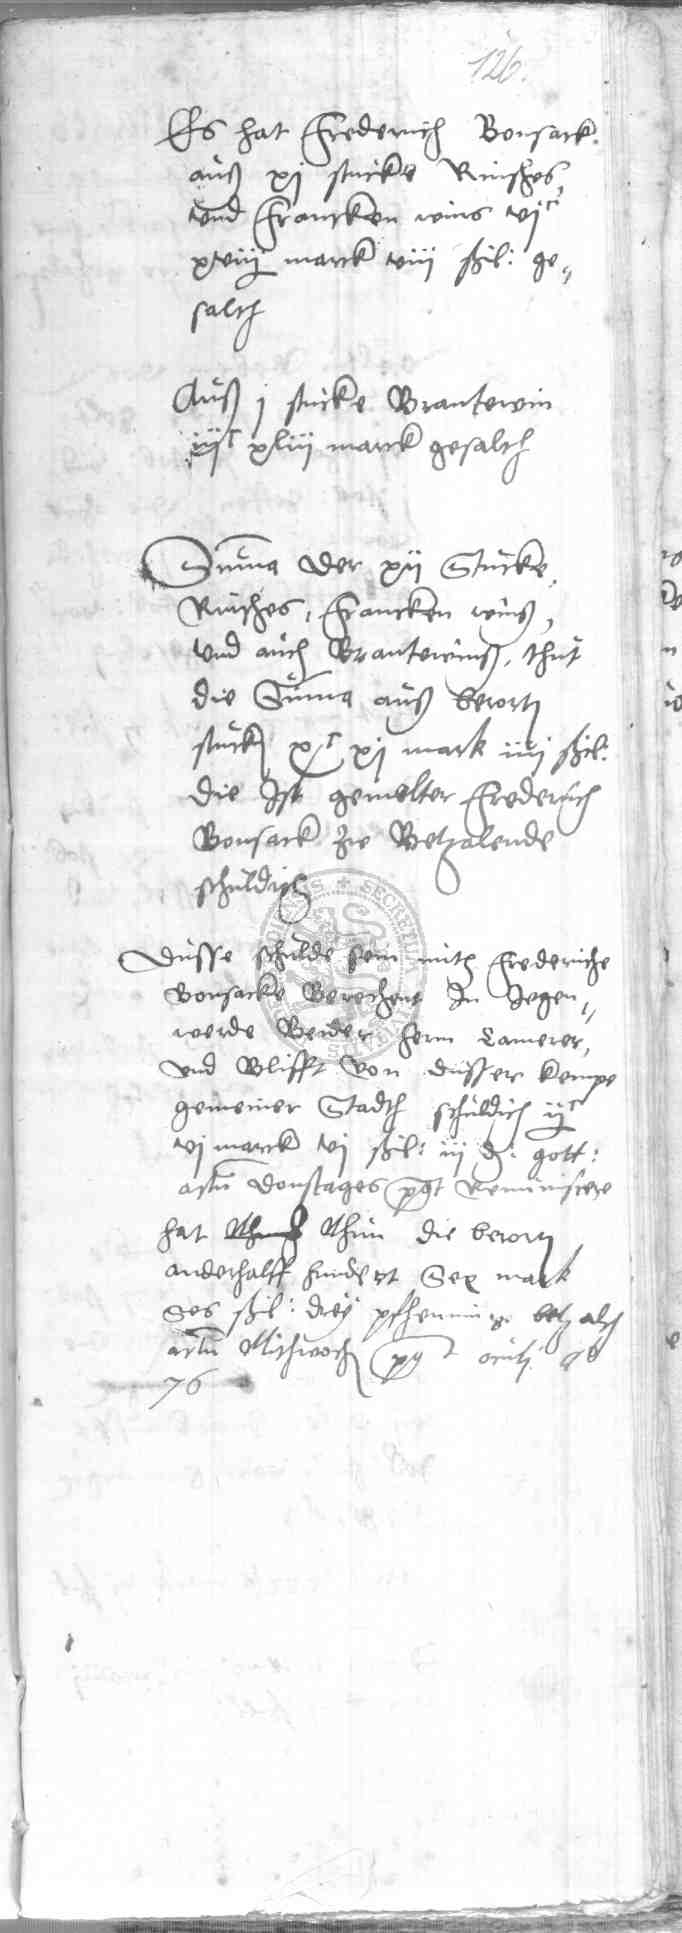 126.
Es hat Frederich Bonsack
auß xj stucke Rinsches
vnd Francken wins vjc
xviij marck viij ßil: ge„
salth
Auß j stucke Brantewin
iijc xliij marck gesalth
Summa der xij Stucke
Rinsches, Francken winß,
vnd auch Brantewinß, thut
die Summa auß berort
stuck xc xj mark iiij ßil:
die Ist gemelter Frederich
Bonsack zu Betzalende
schuldich
Dusse schulde sein mith Frederiche
Bonsacke Berechent In Jegen„
werde Beider hern Camerer,
vnd Blifft von dusser kempe
gemeiner Stadth schuldich ijc
vj marck vj ßil: iij d: gott:
actum Donstages post Reminiscere
hat Thun die berort
anderhalff hundert Sex mark
Ses ßil: drey pfhenninge betzalth
actum Mithwoch post oculj
76
SECRETUM